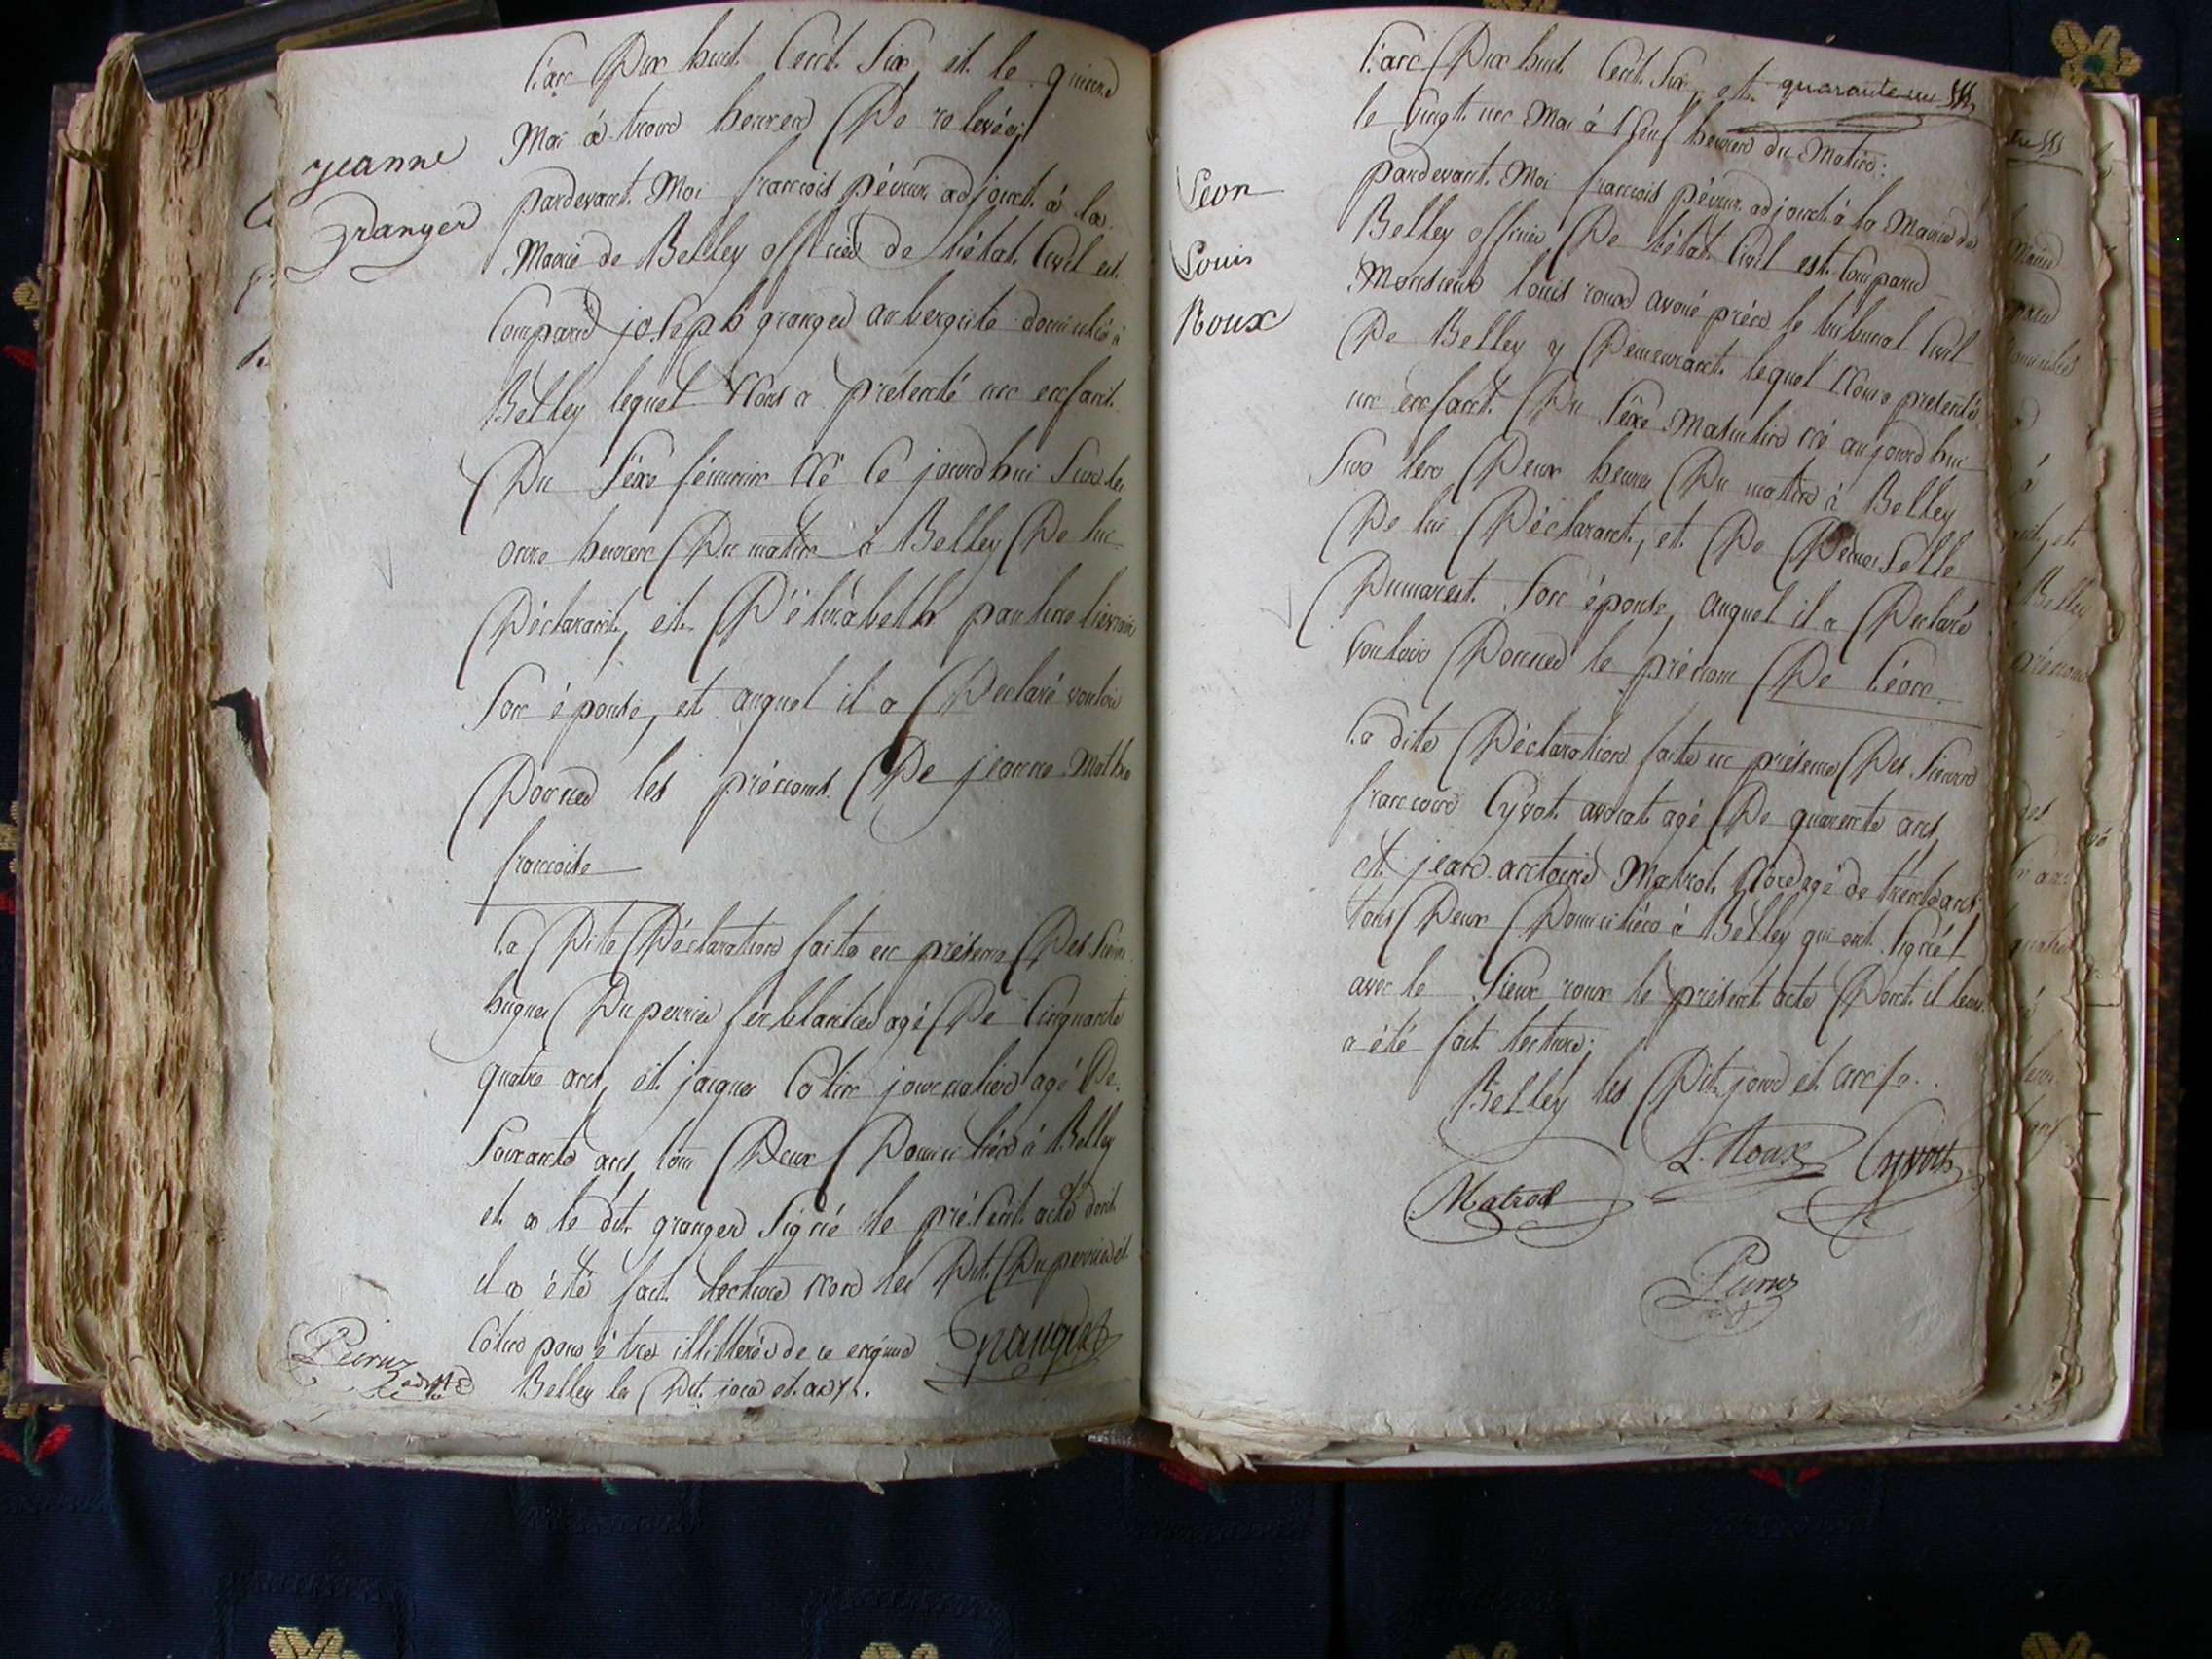 L'an Dix huit Cent Six et le quinze
Mai à trois heures De relevée;
jeanne
granger
pardevant Moi francois péru adjoint à la
Mairie de Belley officier de l'état Civil est
Comparu joseph granger aubergiste domicilié à
Belley lequel Nous a présenté un enfant
Du Séxe féminin Né Ce jourd'hui Sur les
onze heures Du matin à Belley De lui
Déclarant, et D'élisabeth pauline
Son épouse, et auquel il a Déclaré vouloir
Donner les prénoms De jeanne
francoise
La Dite Déclaration faite en présence Des Sieurs
hugues Duperrier ferblantier agé De Cinquante
quatre ans, et jacques Cotin journalier agé De
Soixante ans, tous Deux Domiciliés à Belley
et a le dit granger Signé le présent acte dont
il a été fait lecture Non les Dit Duperrier et
Cotin pour être illittérés de ce enquis
Belley les Dit jour et an
Granger
L'an Dix huit Cent Six, et quarante un
le Vingt un Mai à Neuf heures du Matin:
Leon
Louis
Roux
pardevant Moi francois péru adjoint à la Mairie de
Belley officier De l'état Civil est Comparu
Monsieur louis roux avoué près le tribunal Civil
De Belley y Demeurant lequel Nous a présenté
un enfant Du Séxe Masculin né aujourd'hui
Sur les Deux heures Du matin à Belley
De lui Déclarant, et De Demoiselle
Dumarest Son épouse, auquel il a Déclaré
Vouloir Donner le prénom De Léon
La dite Déclaration faite en présence Des Sieurs
francois Cyvot avocat agé De quarente ans
et jean antoine Matrot agé de trente ans,
tous Deux Domiciliés à Belley qui ont Signé
avec le Sieur roux le présent acte Dont il leur
a été fait lecture;
Belley les Dit jour et an
L. Roux
Cyvoct
Matrod